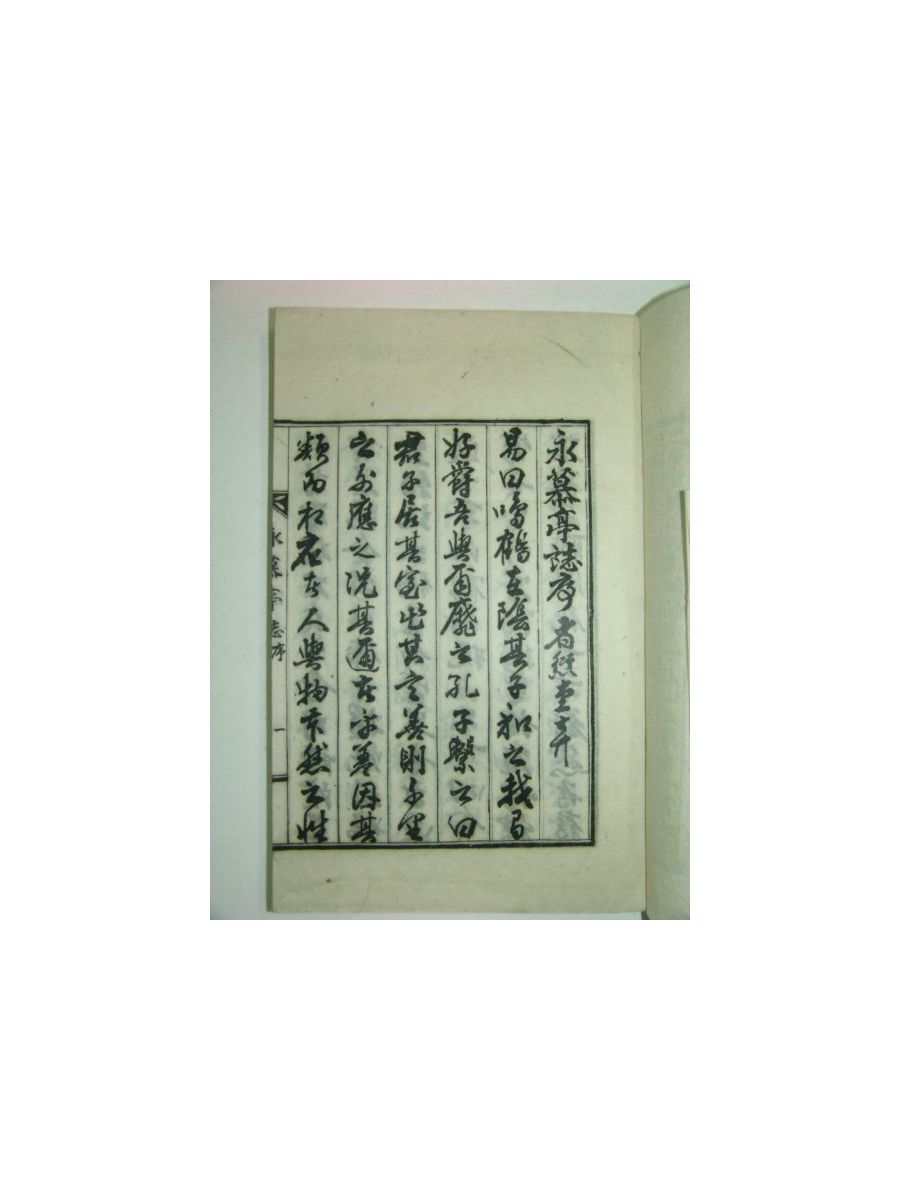 永慕亭誌序
易曰鳴鶴在陰其子和之我有
好爵吾與爾靡之孔子繫之曰
君子居其室出其言善則千里
之外應之况其邇者乎蓋因其
類而相應者人與物皆然之性
永慕亭志序
一